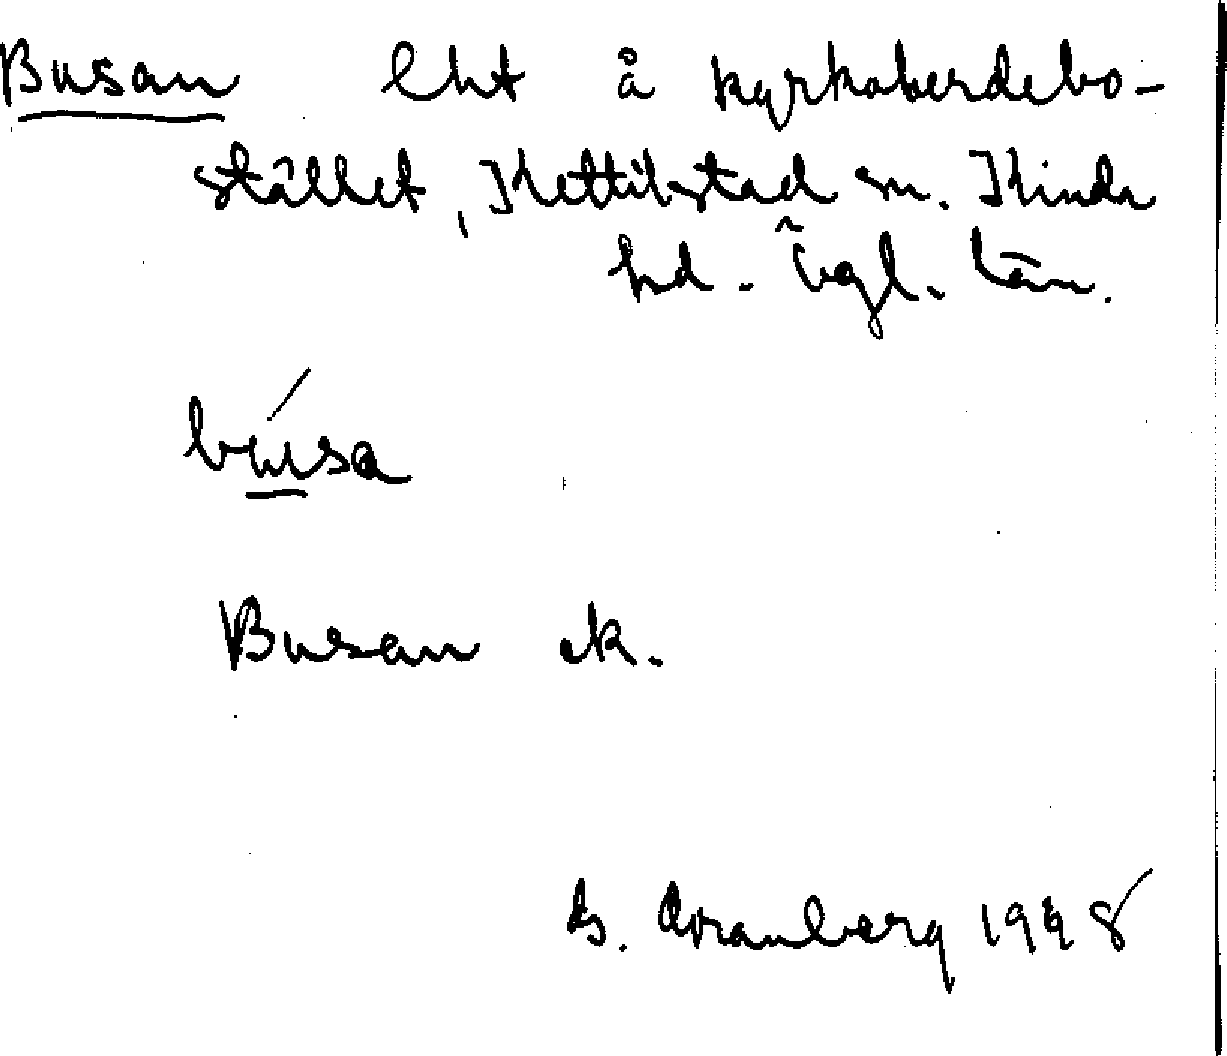 Busan lht å kyrkoherdebo-
stället, Kettilstad sn. Kinda
hd. Ögl. län.
búsa
Busan ek.
G. Granberg 1928